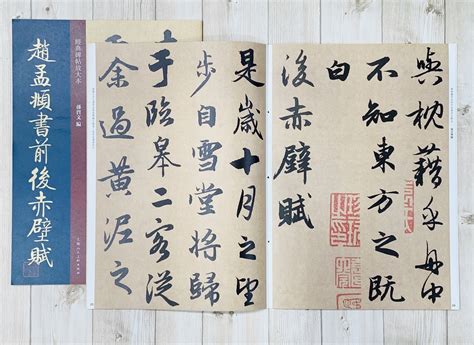 經典碑帖放大本
趙孟頫書前後赤壁賦
孫寶文 編
與枕藉乎舟中
不知東方之既
白
後赤壁賦
是歲十月之望
步自雪堂將歸
于臨皋二客從
余過黃泥之